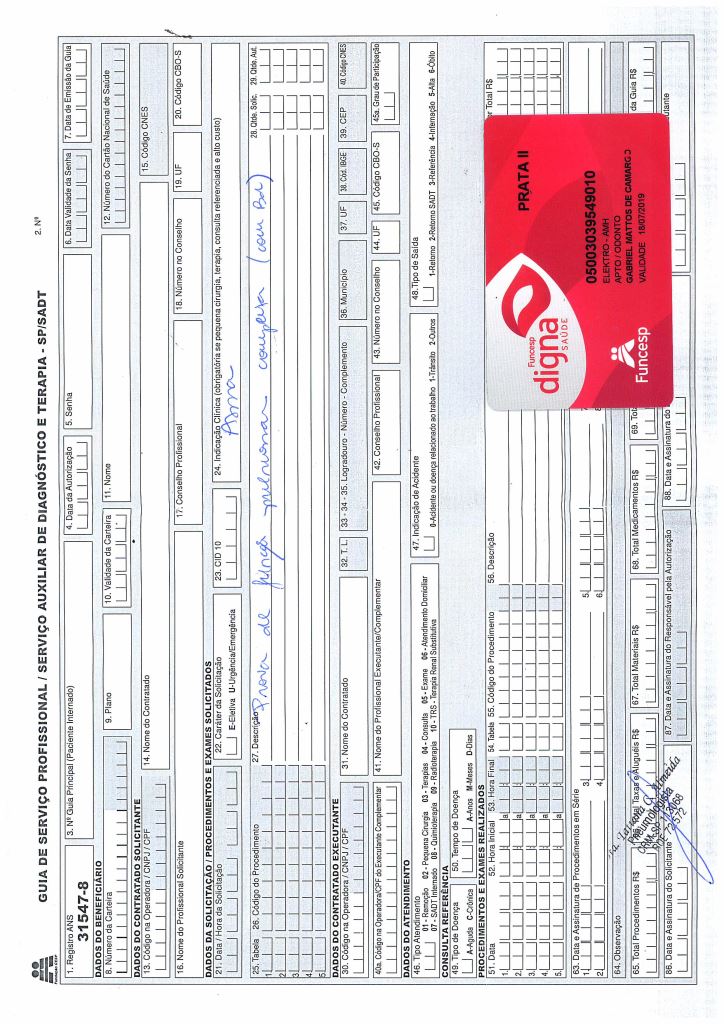 Fundação CESP
GUIA DE SERVIÇO PROFISSIONAL / SERVIÇO AUXILIAR DE DIAGNÓSTICO E TERAPIA - SP/SADT
2. Nº
1. Registro ANS
31547-8
3. Nº Guia Principal (Paciente Internado)
4. Data da Autorização
5. Senha
6. Data Validade da Senha
7. Data de Emissão da Guia
DADOS DO BENEFICIÁRIO
8. Número da Carteira
9. Plano
10. Validade da Carteira
11. Nome
12. Número do Cartão Nacional de Saúde
DADOS DO CONTRATADO SOLICITANTE
13. Código na Operadora / CNPJ / CPF
14. Nome do Contratado
15. Código CNES
16. Nome do Profissional Solicitante
17. Conselho Profissional
18. Número no Conselho
19. UF
20. Código CBO-S
DADOS DA SOLICITAÇÃO / PROCEDIMENTOS E EXAMES SOLICITADOS
21. Data / Hora da Solicitação
22. Caráter da Solicitação
E-Eletiva U-Urgência/Emergência
23. CID 10
24. Indicação Clínica (obrigatória se pequena cirurgia, terapia, consulta referenciada e alto custo)
Asma
25. Tabela
26. Código do Procedimento
27. Descrição
28. Qtde. Solic.
29. Qtde. Aut.
1.
Prova de função pulmonar completa (com Bd)
2.
3.
4.
5.
DADOS DO CONTRATADO EXECUTANTE
30. Código na Operadora / CNPJ / CPF
31. Nome do Contratado
32. T. L.
33 - 34 - 35. Logradouro - Número - Complemento
36. Município
37. UF
38. Cód. IBGE
39. CEP
40. Código CNES
40a. Código na Operadora/CPF do Executante Complementar
41. Nome do Profissional Executante/Complementar
42. Conselho Profissional
43. Número no Conselho
44. UF
45. Código CBO-S
45a. Grau de Participação
DADOS DO ATENDIMENTO
46. Tipo Atendimento
01 - Remoção 02 - Pequena Cirurgia 03 - Terapias 04 - Consulta 05 - Exame 06 - Atendimento Domiciliar
07 - SADT Internado 08 - Quimioterapia 09 - Radioterapia 10 - TRS - Terapia Renal Substitutiva
47. Indicação de Acidente
0-Acidente ou doença relacionado ao trabalho 1-Trânsito 2-Outros
48. Tipo de Saída
1-Retorno 2-Retorno SADT 3-Referência 4-Internação 5-Alta 6-Óbito
CONSULTA REFERÊNCIA
49. Tipo de Doença
A-Aguda C-Crônica
50. Tempo de Doença
A-Anos M-Meses D-Dias
PROCEDIMENTOS E EXAMES REALIZADOS
51. Data
52. Hora Inicial
53. Hora Final
54. Tabela
55. Código do Procedimento
56. Descrição
Total R$
1.
2.
3.
4.
5.
63. Data e Assinatura de Procedimentos em Série
1.
3.
5.
2.
4.
6.
64. Observação
65. Total Procedimentos R$
Taxas e Aluguéis R$
67. Total Materiais R$
68. Total Medicamentos R$
69.
da Guia R$
86. Data e Assinatura do Solicitante
87. Data e Assinatura do Responsável pela Autorização
88. Data e Assinatura do
Almeida
Pneumologista
Funcesp
digna
SAÚDE
PRATA II
Funcesp
05003039549010
ELEKTRO - AMH
APTO / ODONTO
GABRIEL MATTOS DE CAMARGO
VALIDADE 18/07/2019